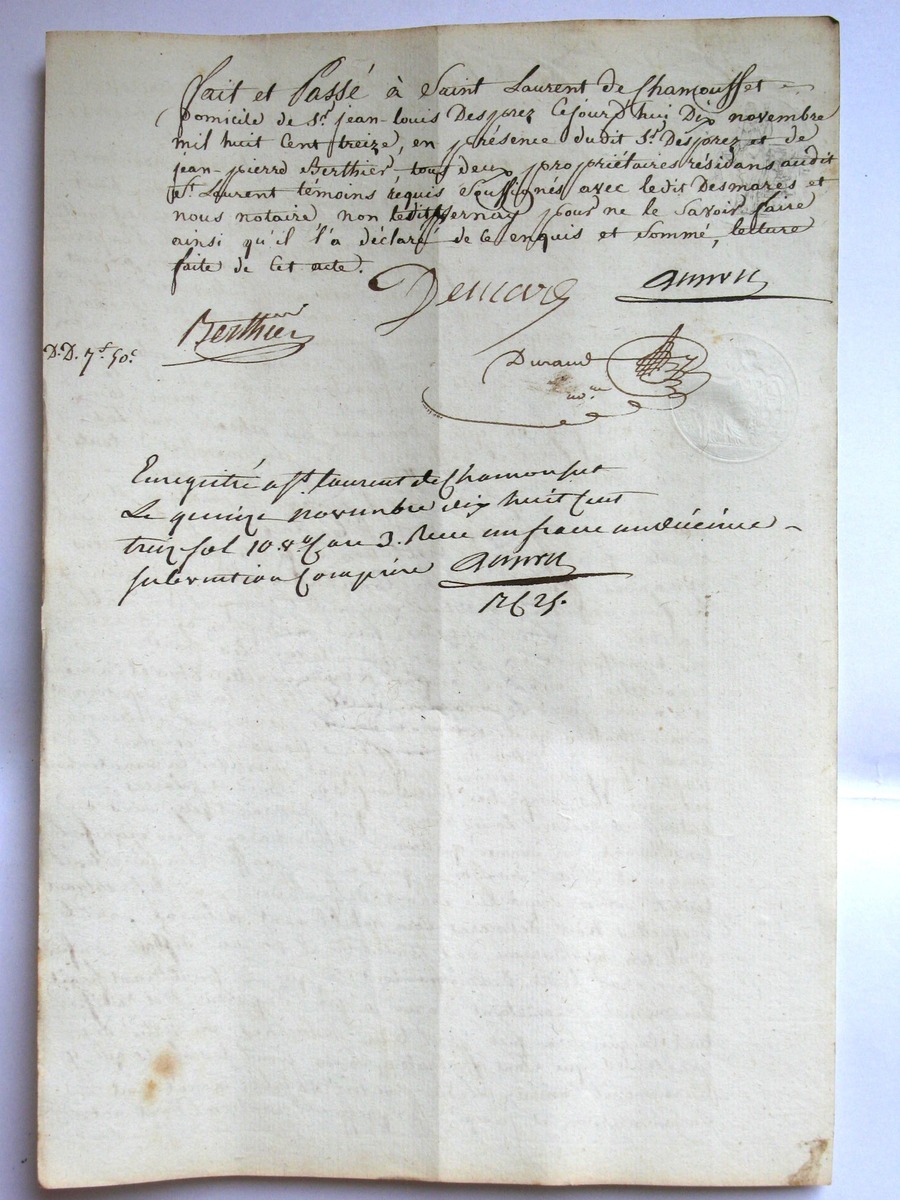 fait et Passé à Saint Laurent de Chamousset
Domicile de Sr. jean-louis Desprez Cejourd'hui Dix novembre
mil huit Cent treize, en présence dudit Sr. Desprez et de
jean-pierre Berthier tous deux propriétaires résidans audit
St. Laurent témoins requis Soussignés avec ledit Desmares et
nous notaire, non ledit pour ne le Savoir faire
ainsi qu'il l'a déclaré de ce enquis et Sommé, lecture
faite de Cet acte.
Berthier
D.D. 7f. 50c.
Durand
Enregistré a St. laurent de Chamousset
Le quinze novembre dix huit Cent
treize fol 10 Case 3. Recu un franc un décime
subvention Comprise